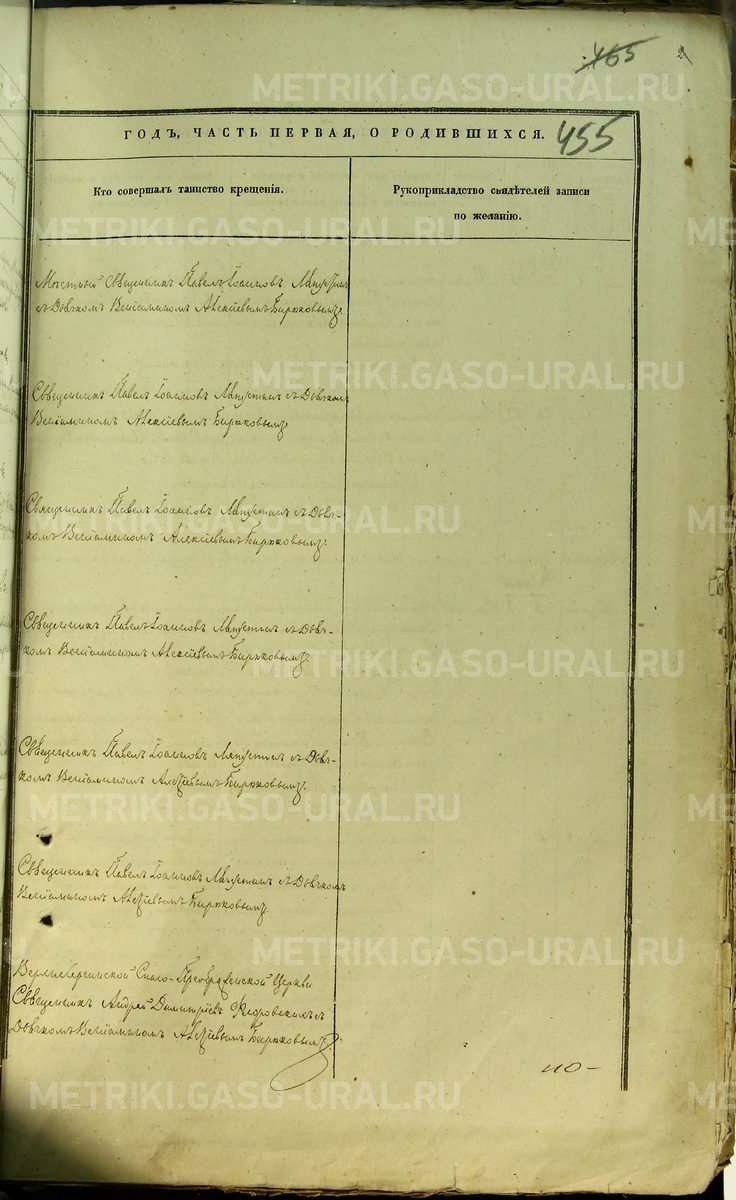 465 2
ГОДЪ, ЧАСТЬ ПЕРВАЯ, О РОДИВШИХСЯ. 455
Кто совершалъ таинство крещенія.
Рукоприкладство свидѣтелей записи
по желанію.
Мѣстный Священникъ Павелъ Іоанновъ
съ Дьячкомъ Веніаминомъ Алексіевымъ Бирюковымъ.
Священникъ Павелъ Іоанновъ съ Дьячкомъ
Веніаминомъ Алексіевымъ Бирюковымъ.
Священникъ Павелъ Іоанновъ съ Дьяч-
комъ Веніаминомъ Алексіевымъ Бирюковымъ.
Священникъ Павелъ Іоанновъ съ Дьяч-
комъ Веніаминомъ Алексіевымъ Бирюковымъ.
Священникъ Павелъ Іоанновъ съ Дьяч-
комъ Веніаминомъ Алексіевымъ Бирюковымъ.
Священникъ Павелъ Іоанновъ съ Дьячкомъ
Веніаминомъ Алексіевымъ Бирюковымъ.
Спасо-Преображенской Церкви
Священникъ Андрей Димитріевъ съ
Дьячкомъ Веніаминомъ Алексіевымъ Бирюковымъ.
METRIKI.GASO-URAL.RU